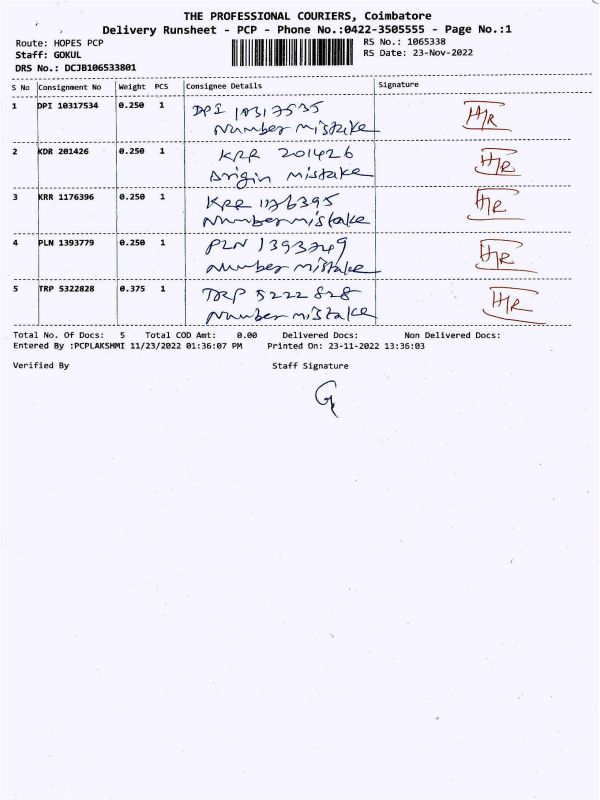 THE PROFESSIONAL COURIERS, Coimbatore
Delivery Runsheet - PCP - Phone No.:0422-3505555 - Page No.:1
Route: HOPES PCP
Staff: GOKUL
DRS No.: DCJB106533801
RS No.: 1065338
RS Date: 23-Nov-2022
S No Consignment No Weight PCS Consignee Details Signature
1 DPI 10317534 0.250 1 DPI 10317535
Number mistake
H/R
2 KDR 201426 0.250 1 KRR 201426
Origin mistake
H/R
3 KRR 1176396 0.250 1 KRR 1176395
Number mistake
H/R
4 PLN 1393779 0.250 1 PLN 1393749
Number mistake
H/R
5 TRP 5322828 0.375 1 TRP 5222828
Number mistake
H/R
Total No. Of Docs: 5 Total COD Amt: 0.00 Delivered Docs: Non Delivered Docs:
Entered By :PCPLAKSHMI 11/23/2022 01:36:07 PM Printed On: 23-11-2022 13:36:03
Verified By Staff Signature